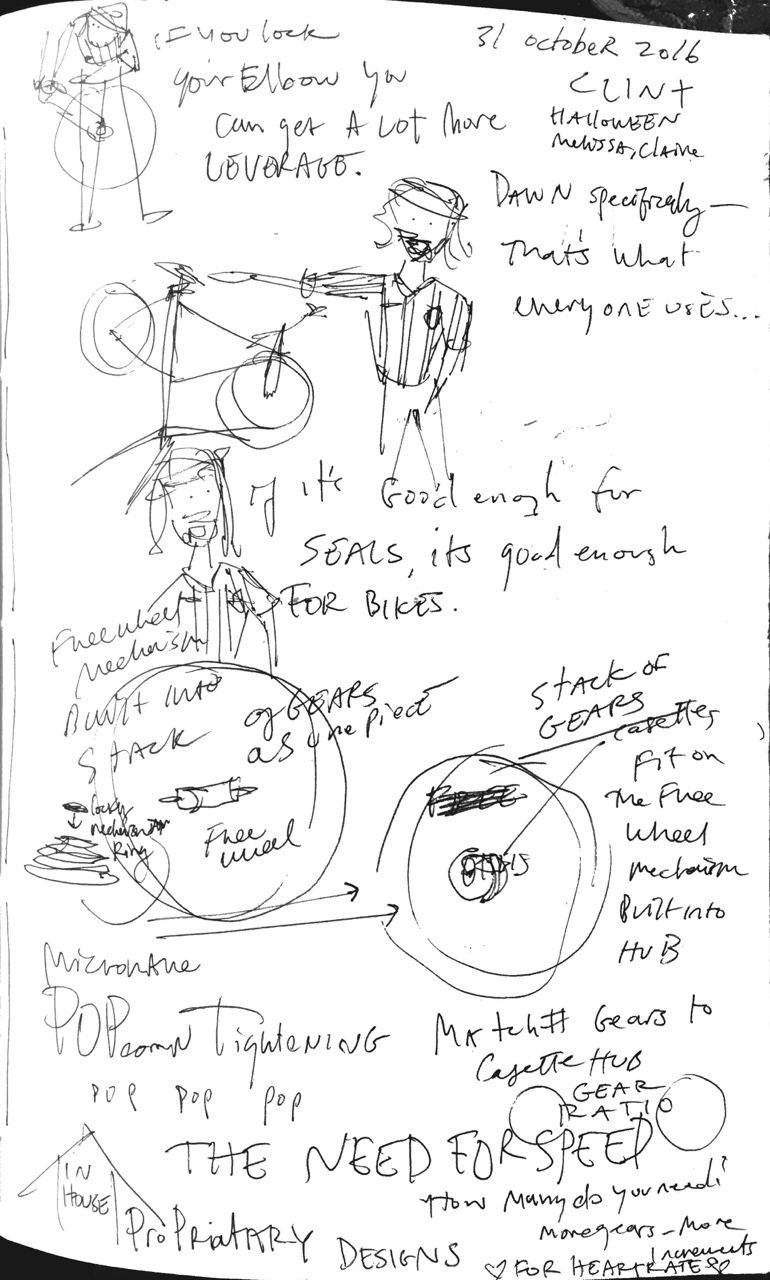 if you lock
your Elbow you
can get A Lot More
LEVERAGE.
31 october 2016
CLINT
HALLOWEEN
Melissa, Claire
DAWN specifically—
That's what
everyone uses...
if it's Good enogh for
SEALS, its good enough
FOR BIKES.
Freewheel
Mechanism
Built into
STACK
of GEARS
as one piece
Locking
Mechanism
Ring
Free
wheel
STACK OF
GEARS
Casettes
fit on
The Free
Wheel
mechanism
Built into
HUB
Microwave
POPcorn Tightening
POP POP POP
Match # Gears to
Casette HUB
GEAR
RATIO
THE NEED FOR SPEED
IN
HOUSE
ProPriatary DESIGNS
How Many do you need?
More gears — More
Increments
♡ FOR HEARTRATE ♡